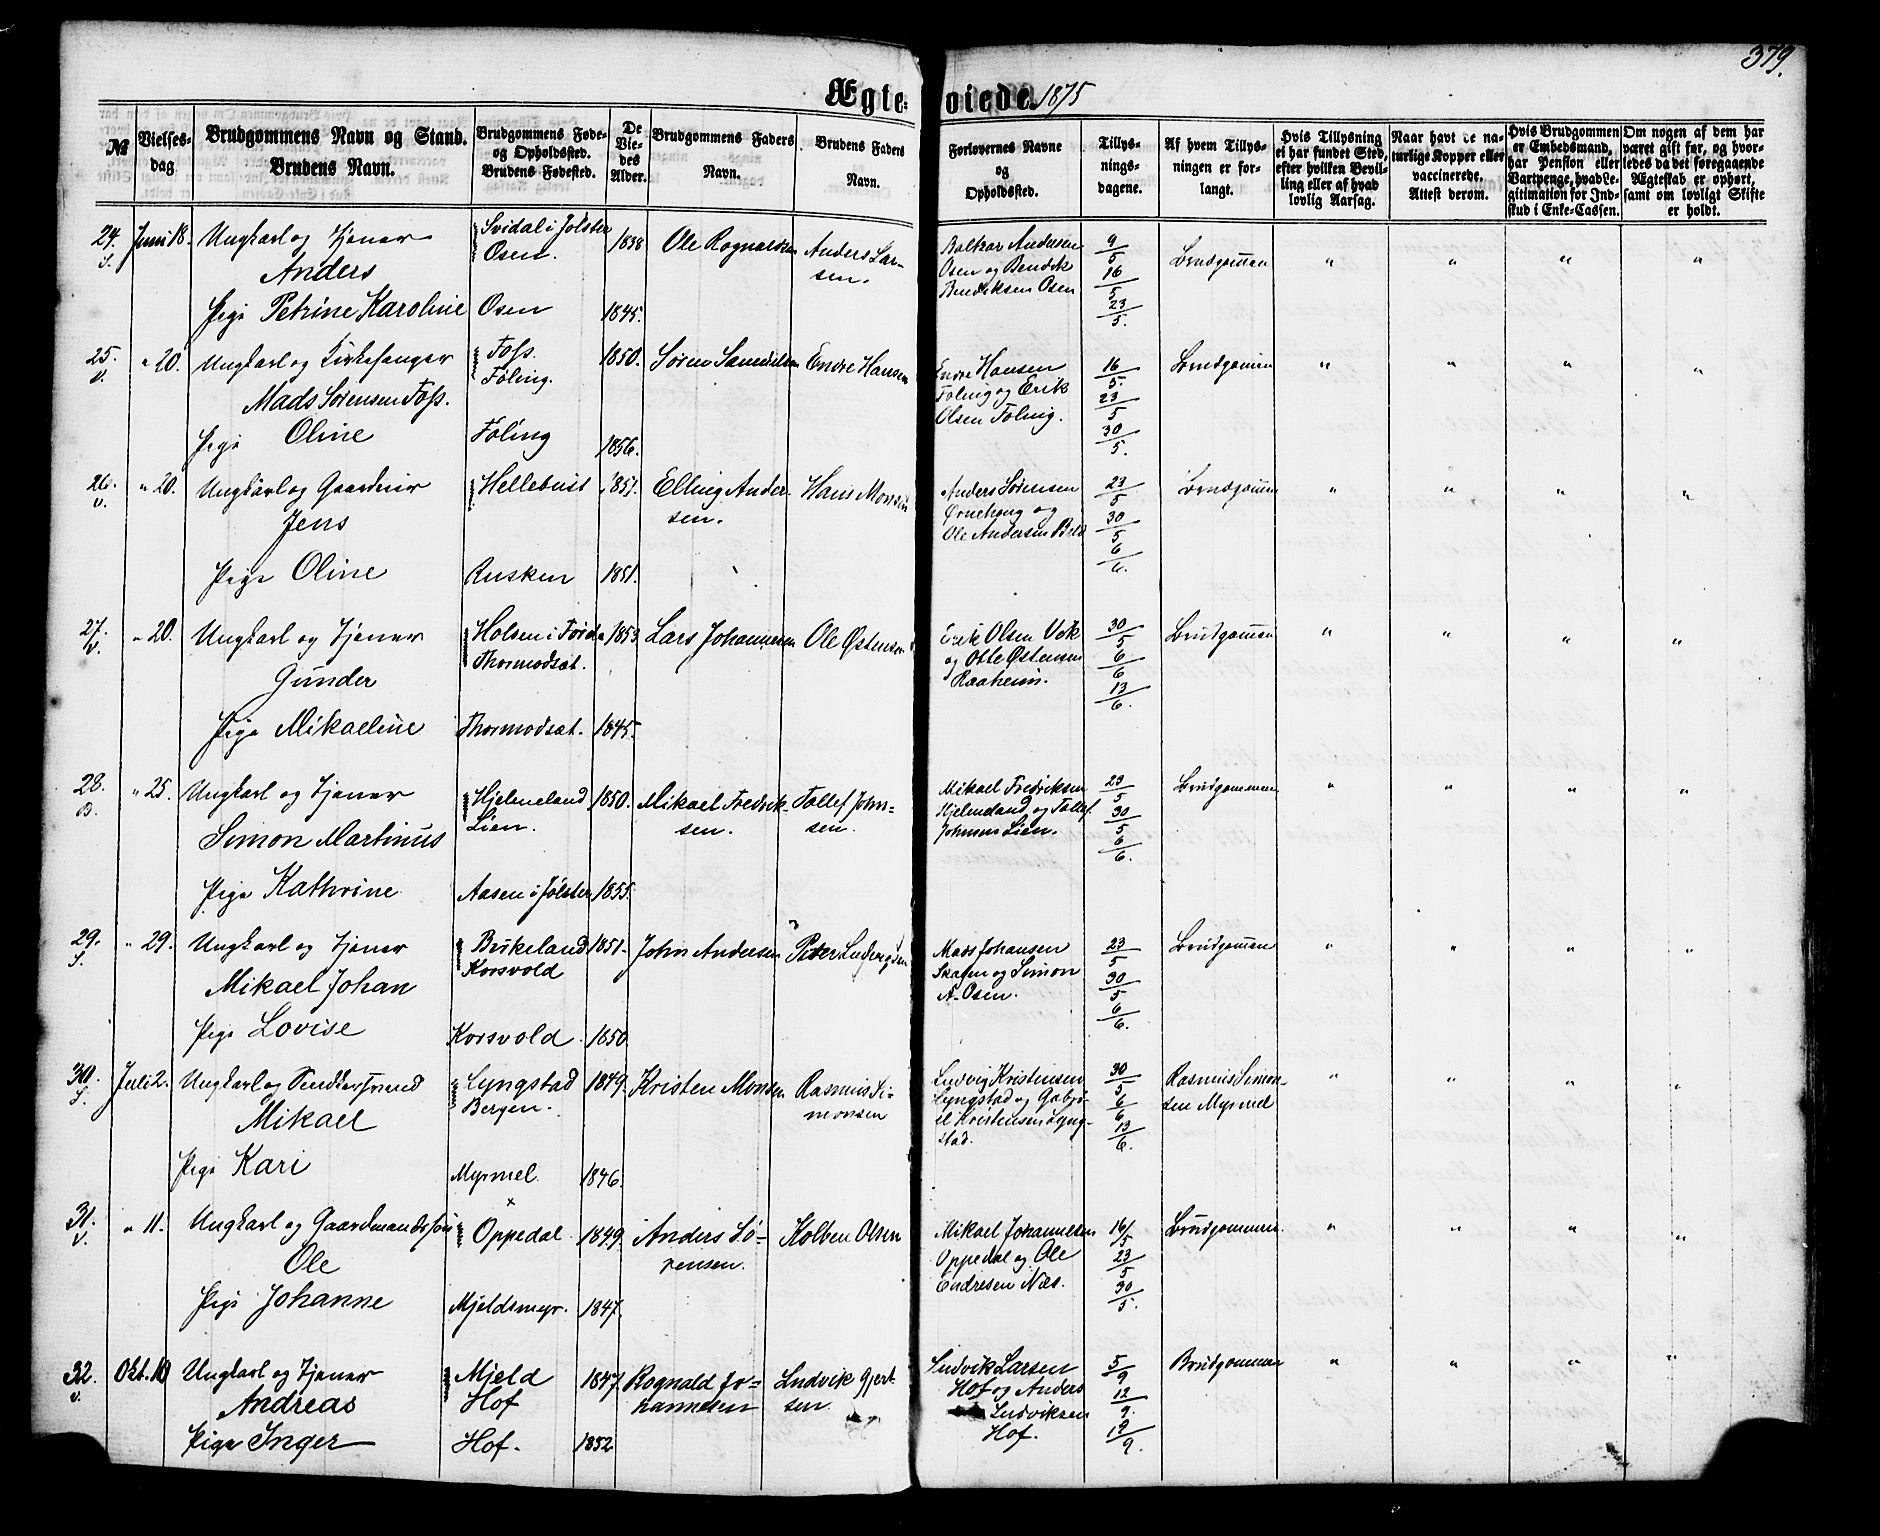 379.
Ægteviede. 1875
№
Vielses-dag
Brudgommens Navn og Stand. Brudens Navn.
Brudgommens Føde- og Opholdssted. Brudens Fødested.
De Viedes Alder.
Brudgommens Faders Navn.
Brudens Faders Navn.
Forlovernes Navne og Opholdssted.
Tillysningsdagene.
Af hvem Tillysningen er forlangt.
Hvis Tillysning ei har fundet Sted, efter hvilken Bevilling eller af hvad lovlig Aarsag.
Naar havt de naturlige Kopper eller vaccinerede. Attest derom.
Hvis Brudgommen er Embedsmand, har Pension eller Vartpenge, hvad Legitimation for Indskud i Enke-Cassen.
Om nogen af dem har været gift før, og hvorledes da det foregaaende Ægteskab er ophørt, samt om lovligt Skifte er holdt.
24. S. Juni 18. Ungkarl og Tjener Svidal i Jølster 1838 Ole Rognaldsen Anders Lar- Baltzar Andersen 9/5 Brudgommen " " " "
Anders Osen. sen. Osen og Bendik 16/5
Pige Petrine Karoline Osen 1845. Bendiksen Osen 23/5.
25. V. " 20. Ungkarl og Kirkesanger Foss. 1850. Søren Samuelsen Endre Hansen Endre Hansen 16/5. Brudgommen " " " "
Mads Sørensen Foss. Føling. Føling og Erik 23/5
Pige Oline Føling 1856. Olsen Føling. 30/5.
26. V. " 20. Ungkarl og Gaardeier Hellebust 1851. Elling Ander- Hans Monsen Anders Sørensen 23/5 Brudgommen " " " "
Jens sen. Ørnehaug og 30/5
Pige Oline Rusken 1851. Ole Andersen 6/6.
27. V. " 20. Ungkarl og Tjener Holsen i Førde 1853. Lars Johannesen Ole Østensen Erik Olsen 30/5 Brudgommen " " " "
Gunder Thormodsæt. og Otte Østensen 6/6
Pige Mikaeline Thormodsæt. 1845. Raaheim. 13/6.
28. B. " 25. Ungkarl og Tjener Hjelmeland 1850. Mikael Fredrik- Tollef John- Mikael Fredriksen 23/5 Brudgommen " " " "
Simon Martinus Lien. sen. sen. Hjelmeland og Tollef 30/5
Pige Kathrine Aasen i Jølster 1855. Johnsen Lien. 6/6.
29. S. " 29. Ungkarl og Tjener Birkeland 1851. John Andersen Peter Mads Johansen 23/5 Brudgommen " " " "
Mikael Johan Korsvold Skagen og Simon 30/5
Pige Lovise Korsvold 1850. A. Osen. 6/6.
30. S. Juli 2. Ungkarl og Lyngstad 1849. Kristen Monsen Rasmus Si- Ludvig Kristensen 30/5 Rasmus Simon- " " " "
Mikael Bergen. monsen Lyngstad og Gabri- 6/6 sen Myrmel
Pige Kari Myrmel. 1846. el Kristensen Lyng- 13/6.
stad.
31. V. " 11. Ungkarl og Gaardmandssøn Oppedal 1849. Anders Sø- Kolben Olsen Mikael Johannesen 16/5 Brudgommen " " " "
Ole rensen. Oppedal og Ole 23/5
Pige Johanne Mjeldsmyr. 1847. Endresen Næs. 30/5.
32. V. Okt. 10 Ungkarl og Tjener Mjeld 1847. Rognald Jo- Ludvik Gjert- Ludvik Larsen 5/9 Brudgommen " " " "
Andreas Hof hannesen sen Hof og Anders 12/9.
Pige Inger Hof. 1852 Ludviksen 19/9.
Hof.